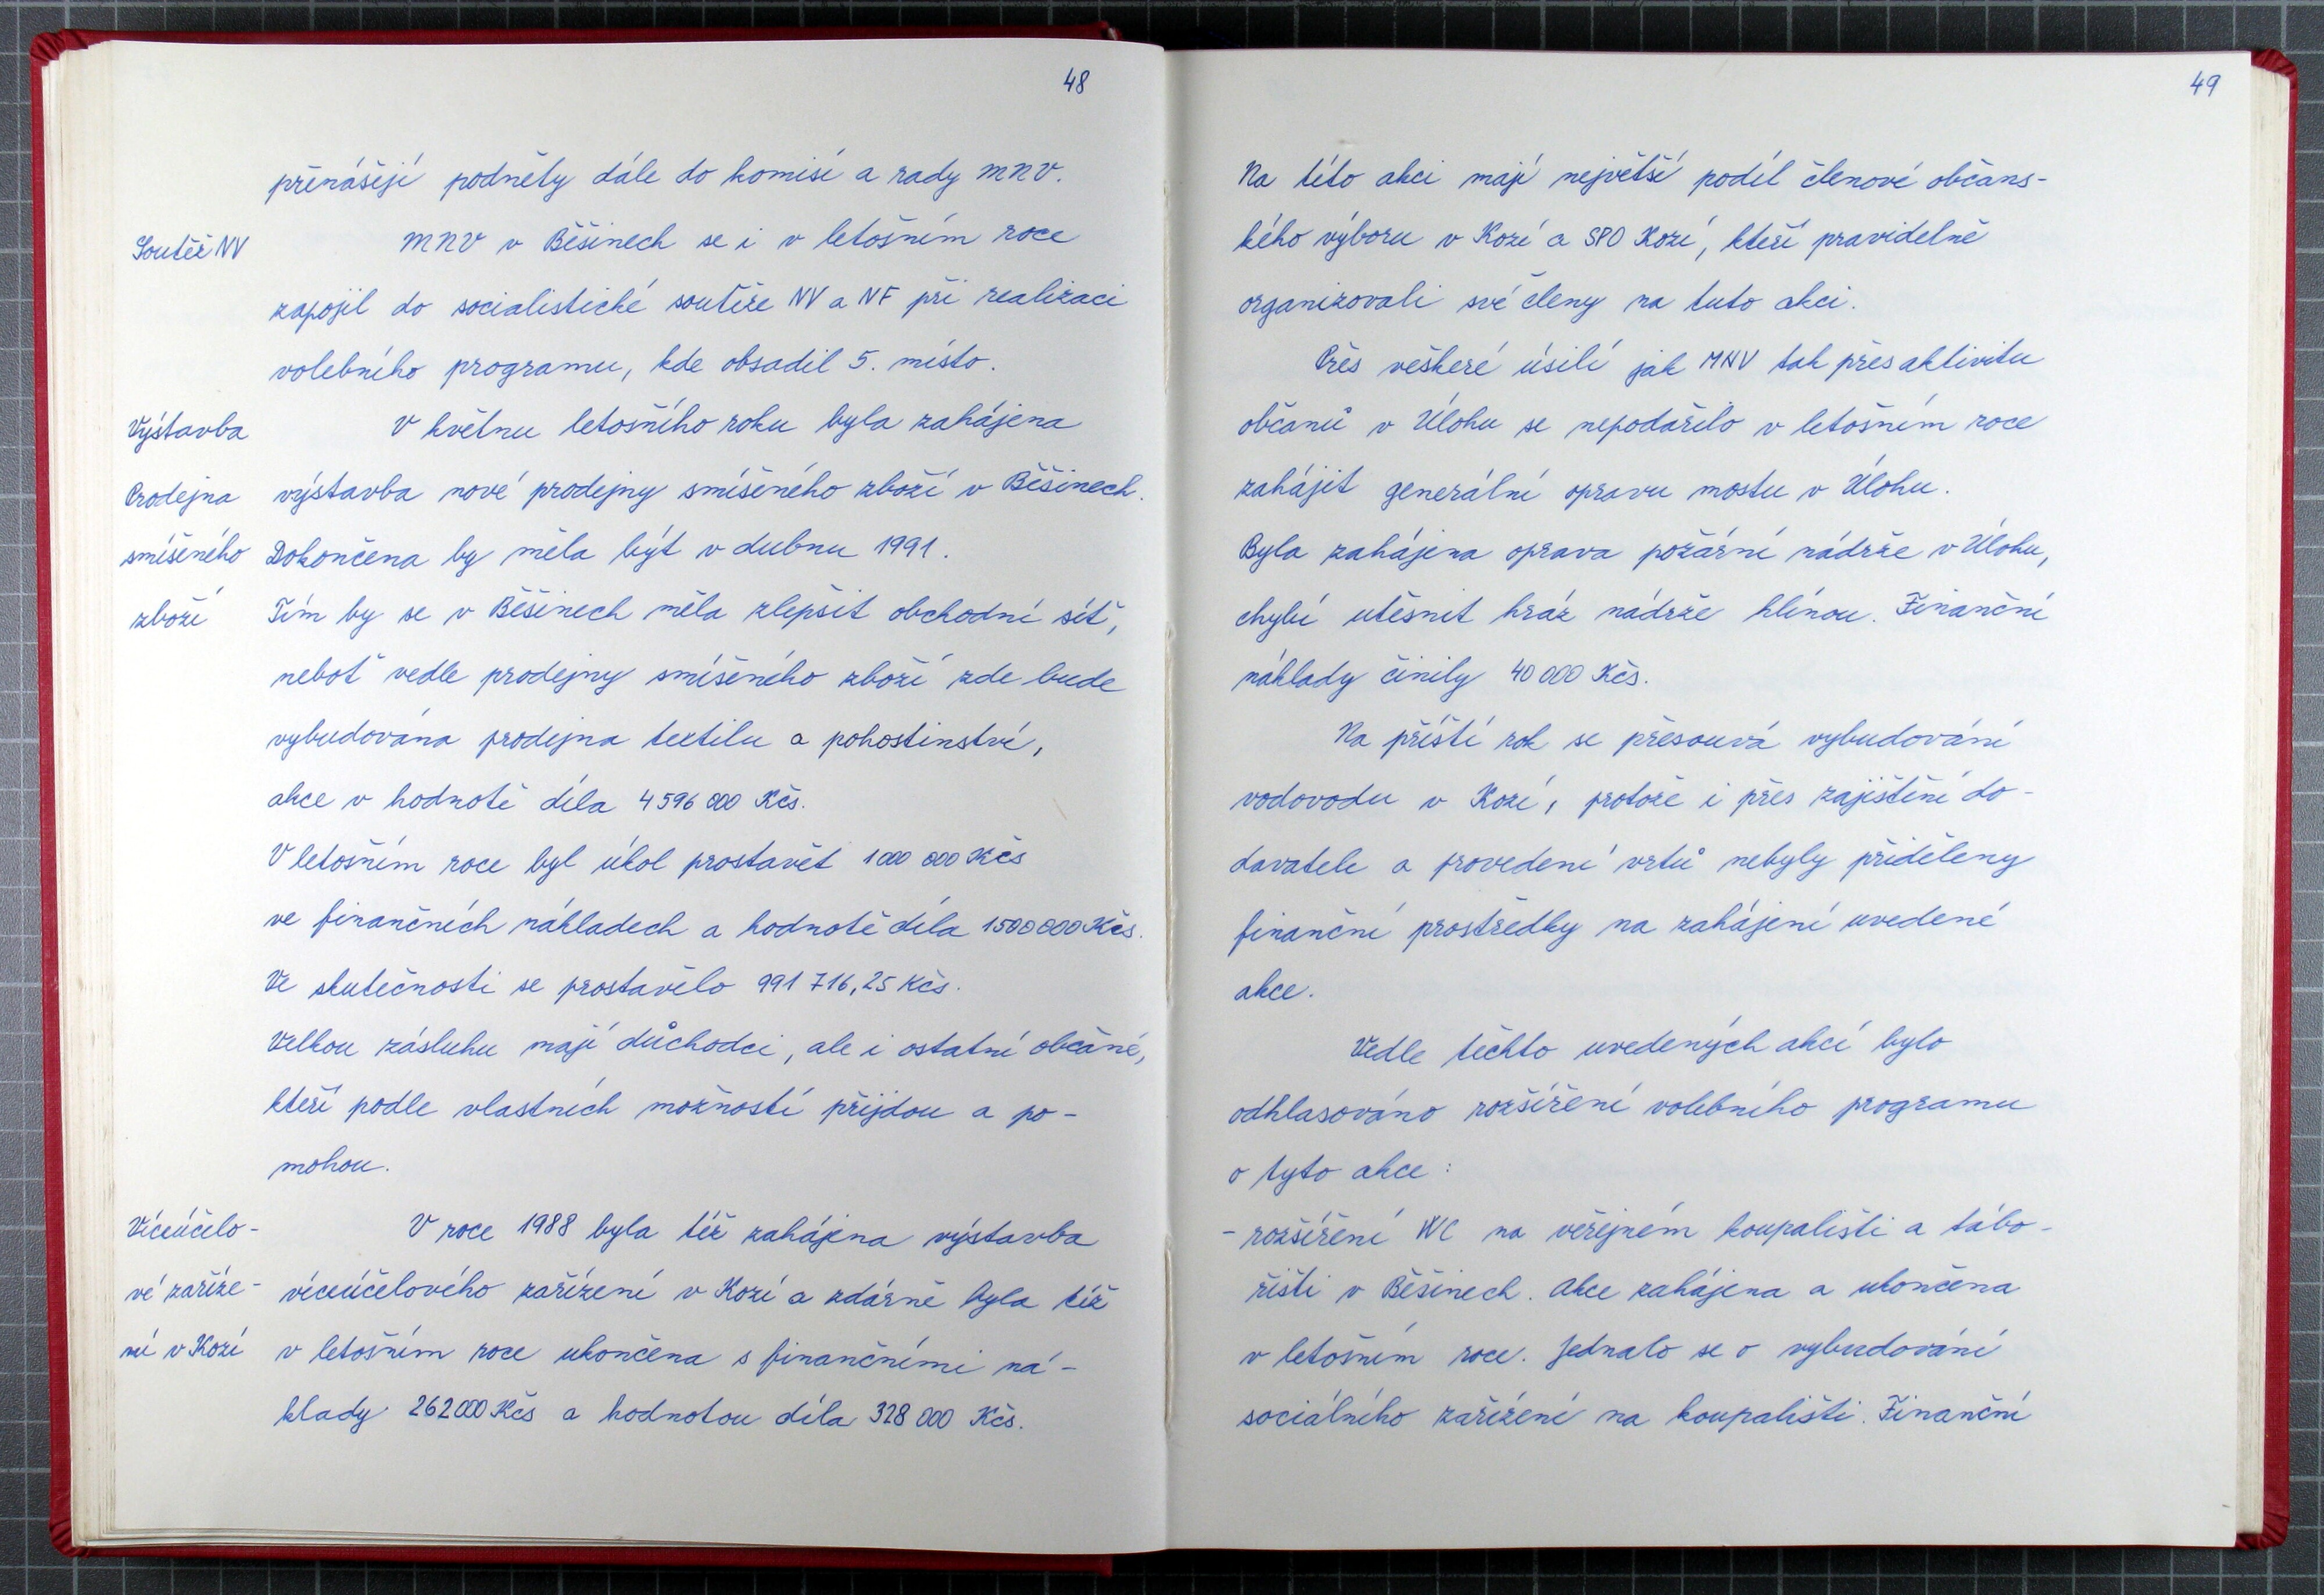 48
přenášejí podněty dále do komisí a rady MNV.
Soutěž NV
MNV v Běšinech se i v letošním roce
zapojil do socialistické soutěže NV a NF při realizaci
volebního programu, kde obsadil 5. místo.
Výstavba
V květnu letošního roku byla zahájena
Prodejna
výstavba nové prodejny smíšeného zboží v Běšinech.
smíšeného
Dokončena by měla být v dubnu 1991.
zboží
Tím by se v Běšinech měla zlepšit obchodní síť,
neboť vedle prodejny smíšeného zboží zde bude
vybudována prodejna textilu a pohostinství,
akce v hodnotě díla 4 596 000 Kčs.
V letošním roce byl úkol prostavět 1 000 000 Kčs
ve finančních nákladech a hodnotě díla 1500000 Kčs.
Ve skutečnosti se prostavělo 991 716,25 Kčs.
Velkou zásluhu mají důchodci, ale i ostatní občané,
kteří podle vlastních možností přijdou a po-
mohou.
Víceúčelo-
V roce 1988 byla též zahájena výstavba
vé zaříze-
víceúčelového zařízení v Kozí a zdárně byla též
ní v Kozí
v letošním roce ukončena s finančními ná-
klady 262000 Kčs a hodnotou díla 328 000 Kčs.
49
Na této akci mají největší podíl členové občans-
kého výboru v Kozí a SPO Kozí, kteří pravidelně
organizovali své členy na tuto akci.
Přes veškeré úsilí jak MNV tak přes aktivitu
občanů v Úlohu se nepodařilo v letošním roce
zahájit generální opravu mostu v Úlohu.
Byla zahájena oprava požární nádrže v Úlohu,
chybí utěsnit hráz nádrže hlínou. Finanční
náklady činily 40 000 Kčs.
Na příští rok se přesouvá vybudování
vodovodu v Kozí, protože i přes zajištění do-
davatele a provedení vrtů nebyly přiděleny
finanční prostředky na zahájení uvedené
akce.
Vedle těchto uvedených akcí bylo
odhlasováno rozšíření volebního programu
o tyto akce:
- rozšíření WC na veřejném koupališti a tábo-
řišti v Běšinech. Akce zahájena a ukončena
v letošním roce. Jednalo se o vybudování
sociálního zařízení na koupališti. Finanční